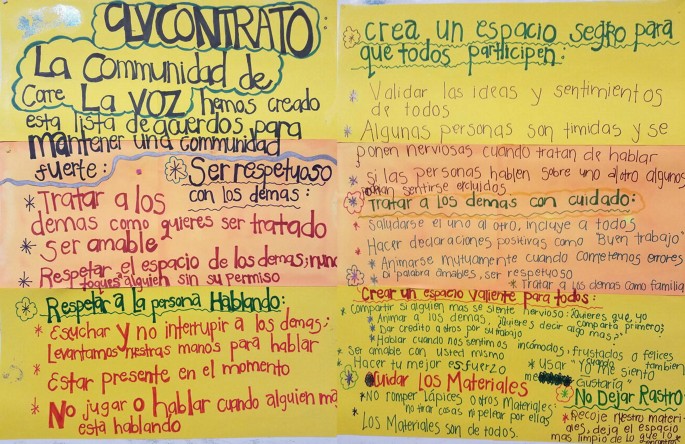 CLV CONTRATO:
La Communidad de
Core La Voz hemos creado
esta lista de acuerdos para
mantener una communidad
fuerte:
Ser respetuoso
con los demas:
* Tratar a los
demas como quieres ser tratado
* Ser amable
* Respetar el espacio de los demas; nunca
toques alguien sin su permiso
Respetar a la persona Hablando:
* Escuchar y no interrupir a los demas;
Levantamos nuestras manos para hablar
* Estar presente en el momento
* No jugar o hablar cuando alguien mas
esta hablando
crea un espacio segro para
que todos participen:
* Validar las ideas y sentimientos
de todos
* Algunas personas son timidas y se
ponen nerviosas cuando tratan de hablar
* si las personas hablen sobre uno al otro algunos
sentirse excluidos
Tratar a los demas con cuidado:
* Saludarse el uno al otro, incluye a todos
* Hacer declaraciones positivas como "Buen trabajo"
* Animarse mutuamente cuando cometemos errores
* Di palabra amables, ser respetuoso
* Tratar a los demas como familia
Crear un espacio valiente para todos:
* Compartir si alguien mas se siente nervioso: Quieres que yo
comparta primero;
* Animar a los demas; Quieres decir algo mas?
* Dar credito a otros por su trabajo
* Hablar cuando nos sentimos incómodos, frustados o felices
* Ser amable con usted mismo
* Hacer tu mejor esfuerzo
* Usar "Yo me siento cuando también
me Gustaría"
Cuidar Los Materiales
* No romper Lápices o otros Materiales:
no tirar cosas ni pelear por ellas
* Los Materiales son de todos
No Dejar Rastro
* Recoje nuestro materi-
ales, deja el espacio
mas limpio de lo que lo